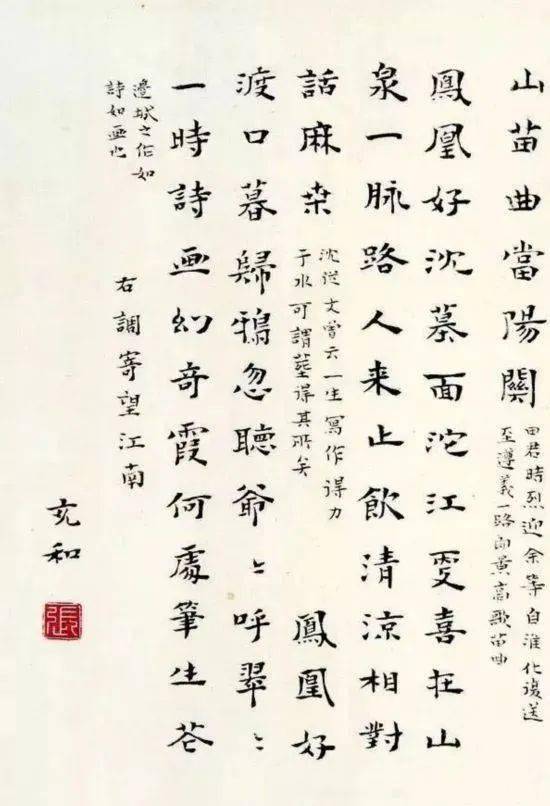 山苗曲當陽關
田君時烈迎余等自淮化復送
至遵義一路黄高歌苗曲
鳳凰好沈墓面沱江更喜在山
泉一脉路人来止飲清涼相對
話麻桑
沈從文曾云一生寫作得力
于水可謂塟得其所矣
鳳凰好
渡口暮歸鴉忽聽爺〻呼翠〻
一時詩画幻奇霞何處筆生花
邊城之作如
詩如画也
右調寄望江南
充和
張